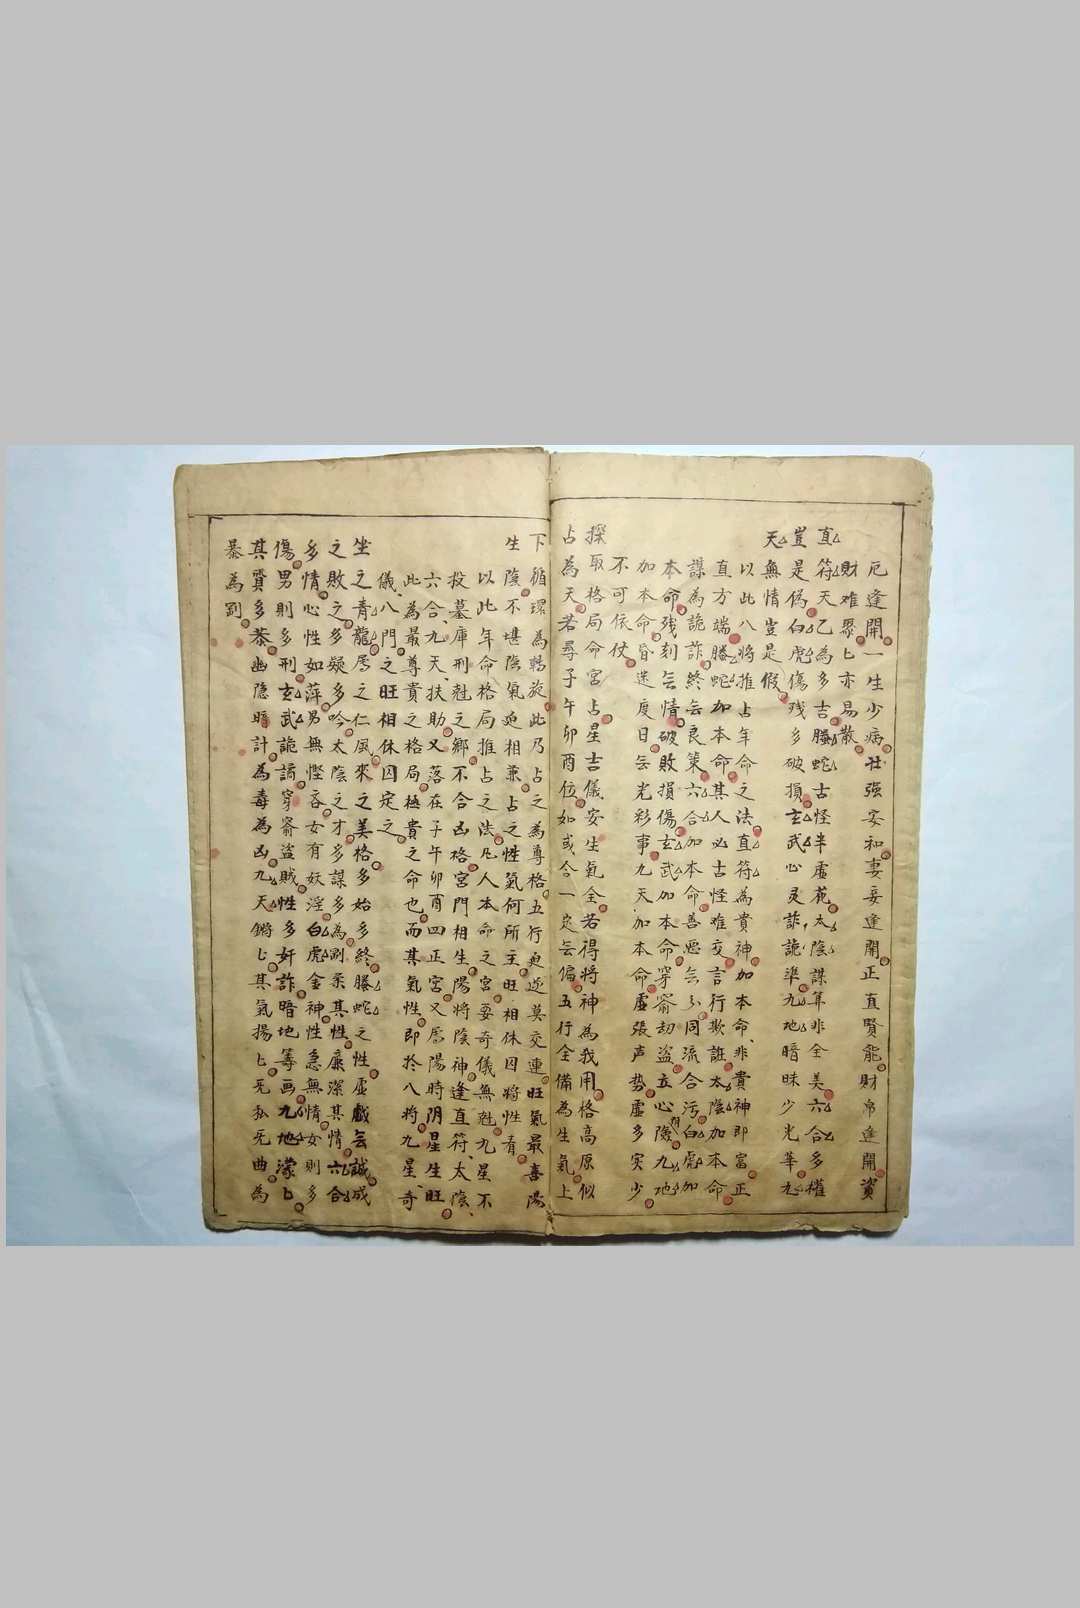 厄逢開一生少病壮強安和妻妾逢開正直賢能財帛逢開資
財难聚匕亦易散
直符天乙為多吉螣蛇古怪半虛花太陰謀筭非全美六合多權
豈是偽白虎傷残多破損玄武心灵詐詭準九地暗昧少光華九
天無情豈是假
以此八將推占年命之法直符為貴神加本命非貴神即富正
直方端螣蛇加本命其人必古怪难交言行欺誑太陰加本命
謀為詭詐終無良策六合加本命善惡無分同流合污白虎加
本命残刻無情破敗損傷玄武加本命穿窬劫盜立心陰險九地
加本命昏迷度日無光彩事九天加本命虛張声势虛多实少
不可依仗
探取格局命宮占星吉儀安生氣全若得將神為我用格高原似
占為天若尋子午卯酉位如或合一定無偏五行全備為生氣上
下循環為斡旋此乃占之為尊格五行更逆莫交連旺氣最喜陽
生陰不堪陰氣迫相兼占之性氣何所主旺相休囚將性看
以此年命格局推占之法凡人本命之宮要奇儀無尅九星不
投墓庫刑尅之鄉不合凶格宮門相生陽將陰神逢直符太陰
六合九天扶助又落在子午卯酉四正宮又居陽時阴星生旺
此為最尊貴之格局極貴之命也而其氣性即於八將九星奇
儀八門之旺相休囚定之
坐之青龍居之仁風來之美格多始多終螣蛇之性虛戲無誠成
之敗之多疑多吟太陰之才多謀多為剛柔其性廉潔其情六合
多情心性如萍男無慳吝女有妖淫白虎金神性急無情女則多
傷男則多刑玄武詭譎穿窬盜賊性多奸詐暗地筹画九地濛匕
其質多恭幽隐暗計為毒為凶九天鏘匕其氣揚匕旡私旡曲為
暴為剛